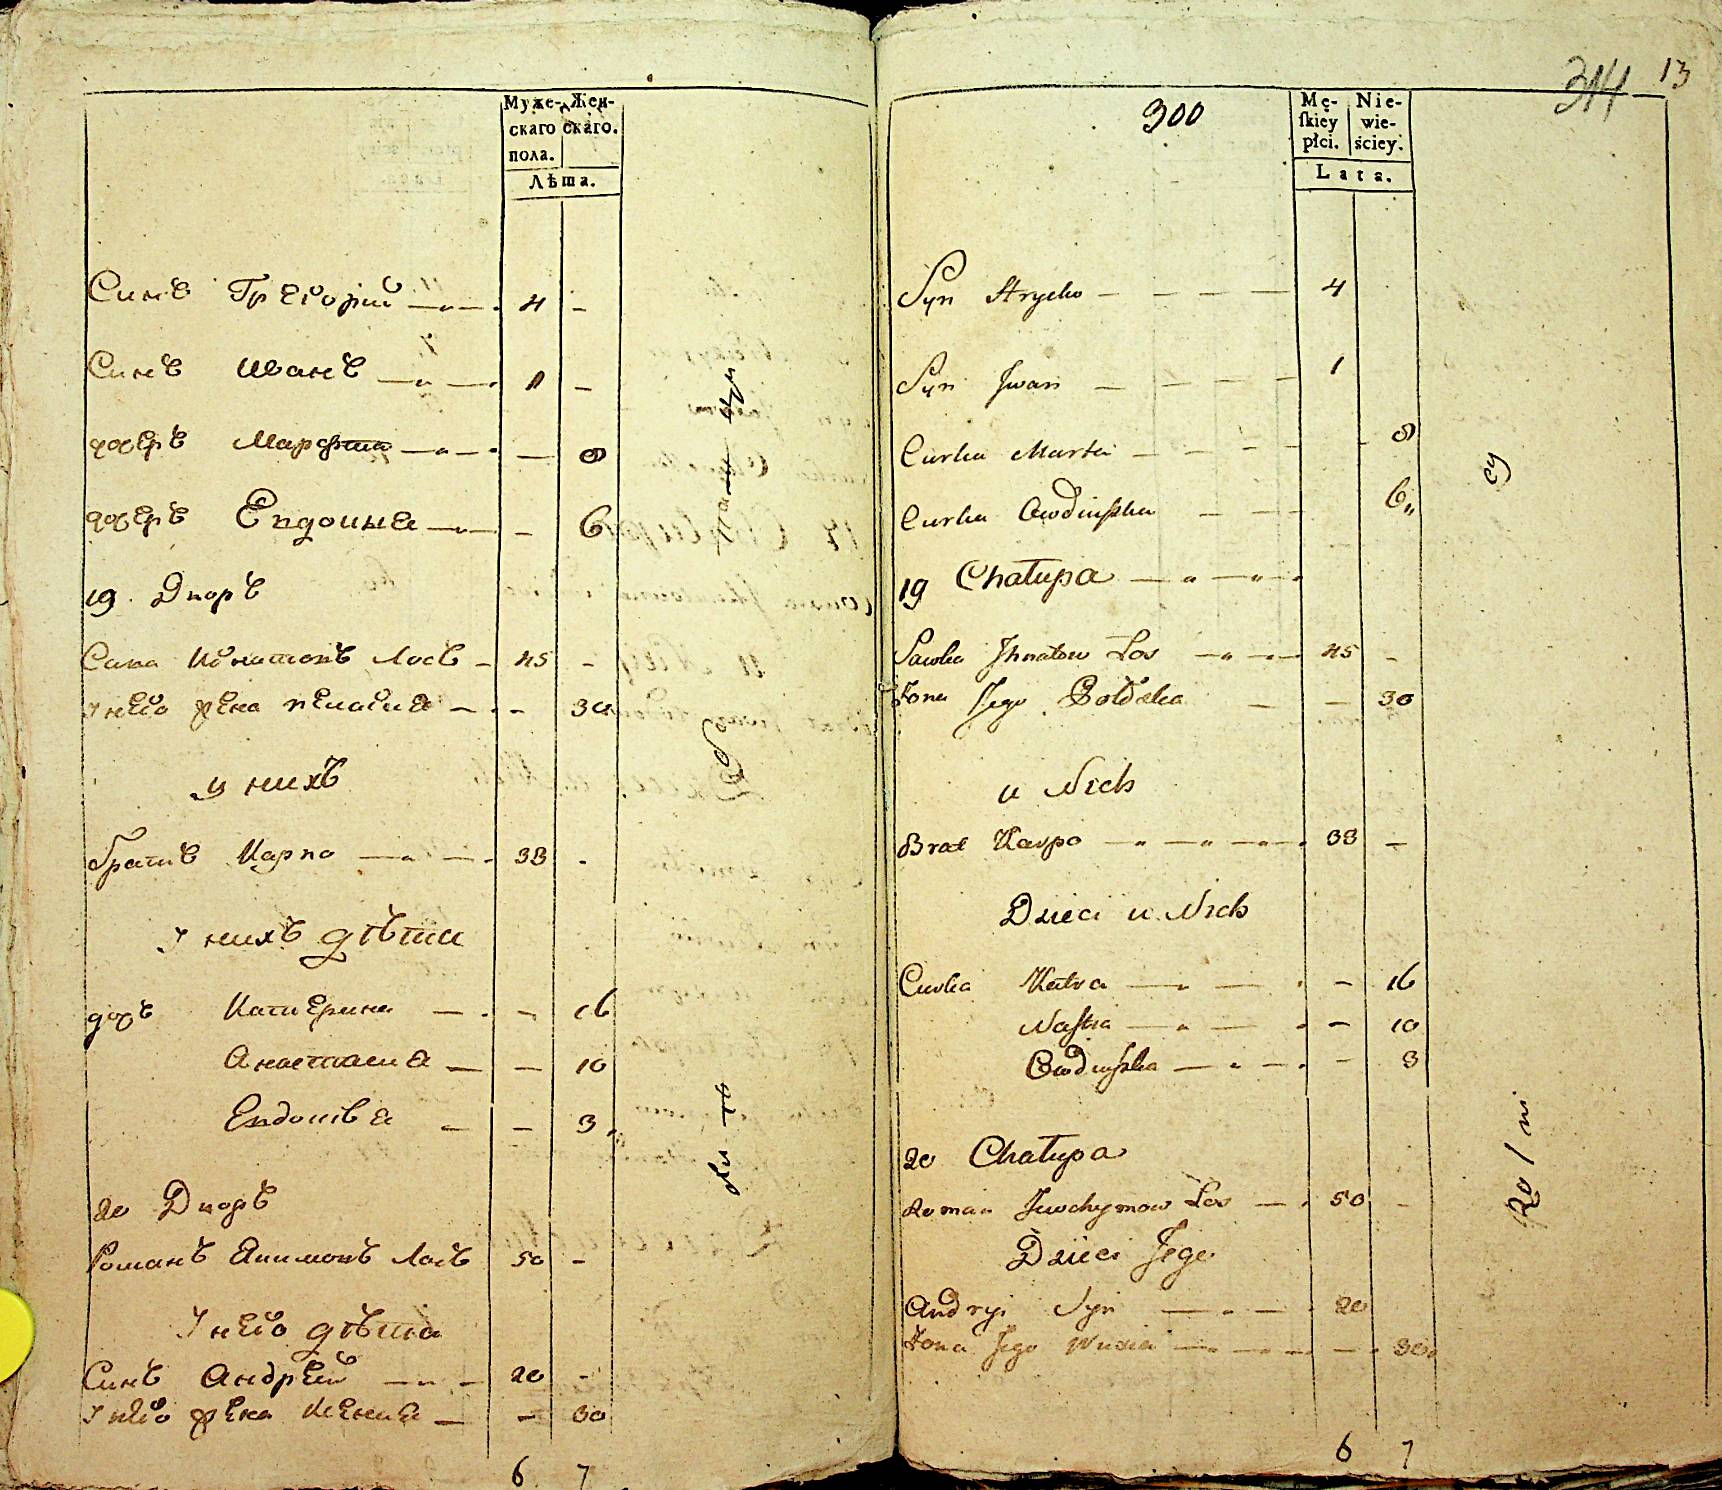 Муже- Жен-
скаго скаго.
пола.
Лѣта.
Синъ Грегорий 4 -
Синъ Иванъ 1 -
дочеръ Марфта - 8
дочеръ Евдокиа - 6
19. Дворъ
Сава Игнатовъ Лось 45 -
У него жена Пелагиа - 30
у нихъ
братъ Карпо 38 -
У нихъ дѣти
доч Катерина - 16
Анастасиа - 10
Евдокіа - 3
20 Дворъ
Романъ Якимовъ Лось 50 -
У него дѣти
Синъ Андрей 20 -
У него жена Ксениа - 30
6 7
314 13
300
Mę- Nie-
ſkiey wie-
płci. ściey.
Lata.
Syn Hrycko 4
Syn Jwan 1
Curka Marta - 8
Curka Owdiuſzka 6
19 Chałupa
Sawka Jhnatow Łos 45 -
Żona Jego - 30
u Nich
Brat Karpo 38 -
Dzieci u Nich
Curka Katra - 16
Naſtia - 10
Owdiuſzka - 3
20 Chałupa
Roman Jwochymow Łos 50 -
Dzieci Jego
Andryi Syn 20
Żona Jego - 30
6 7